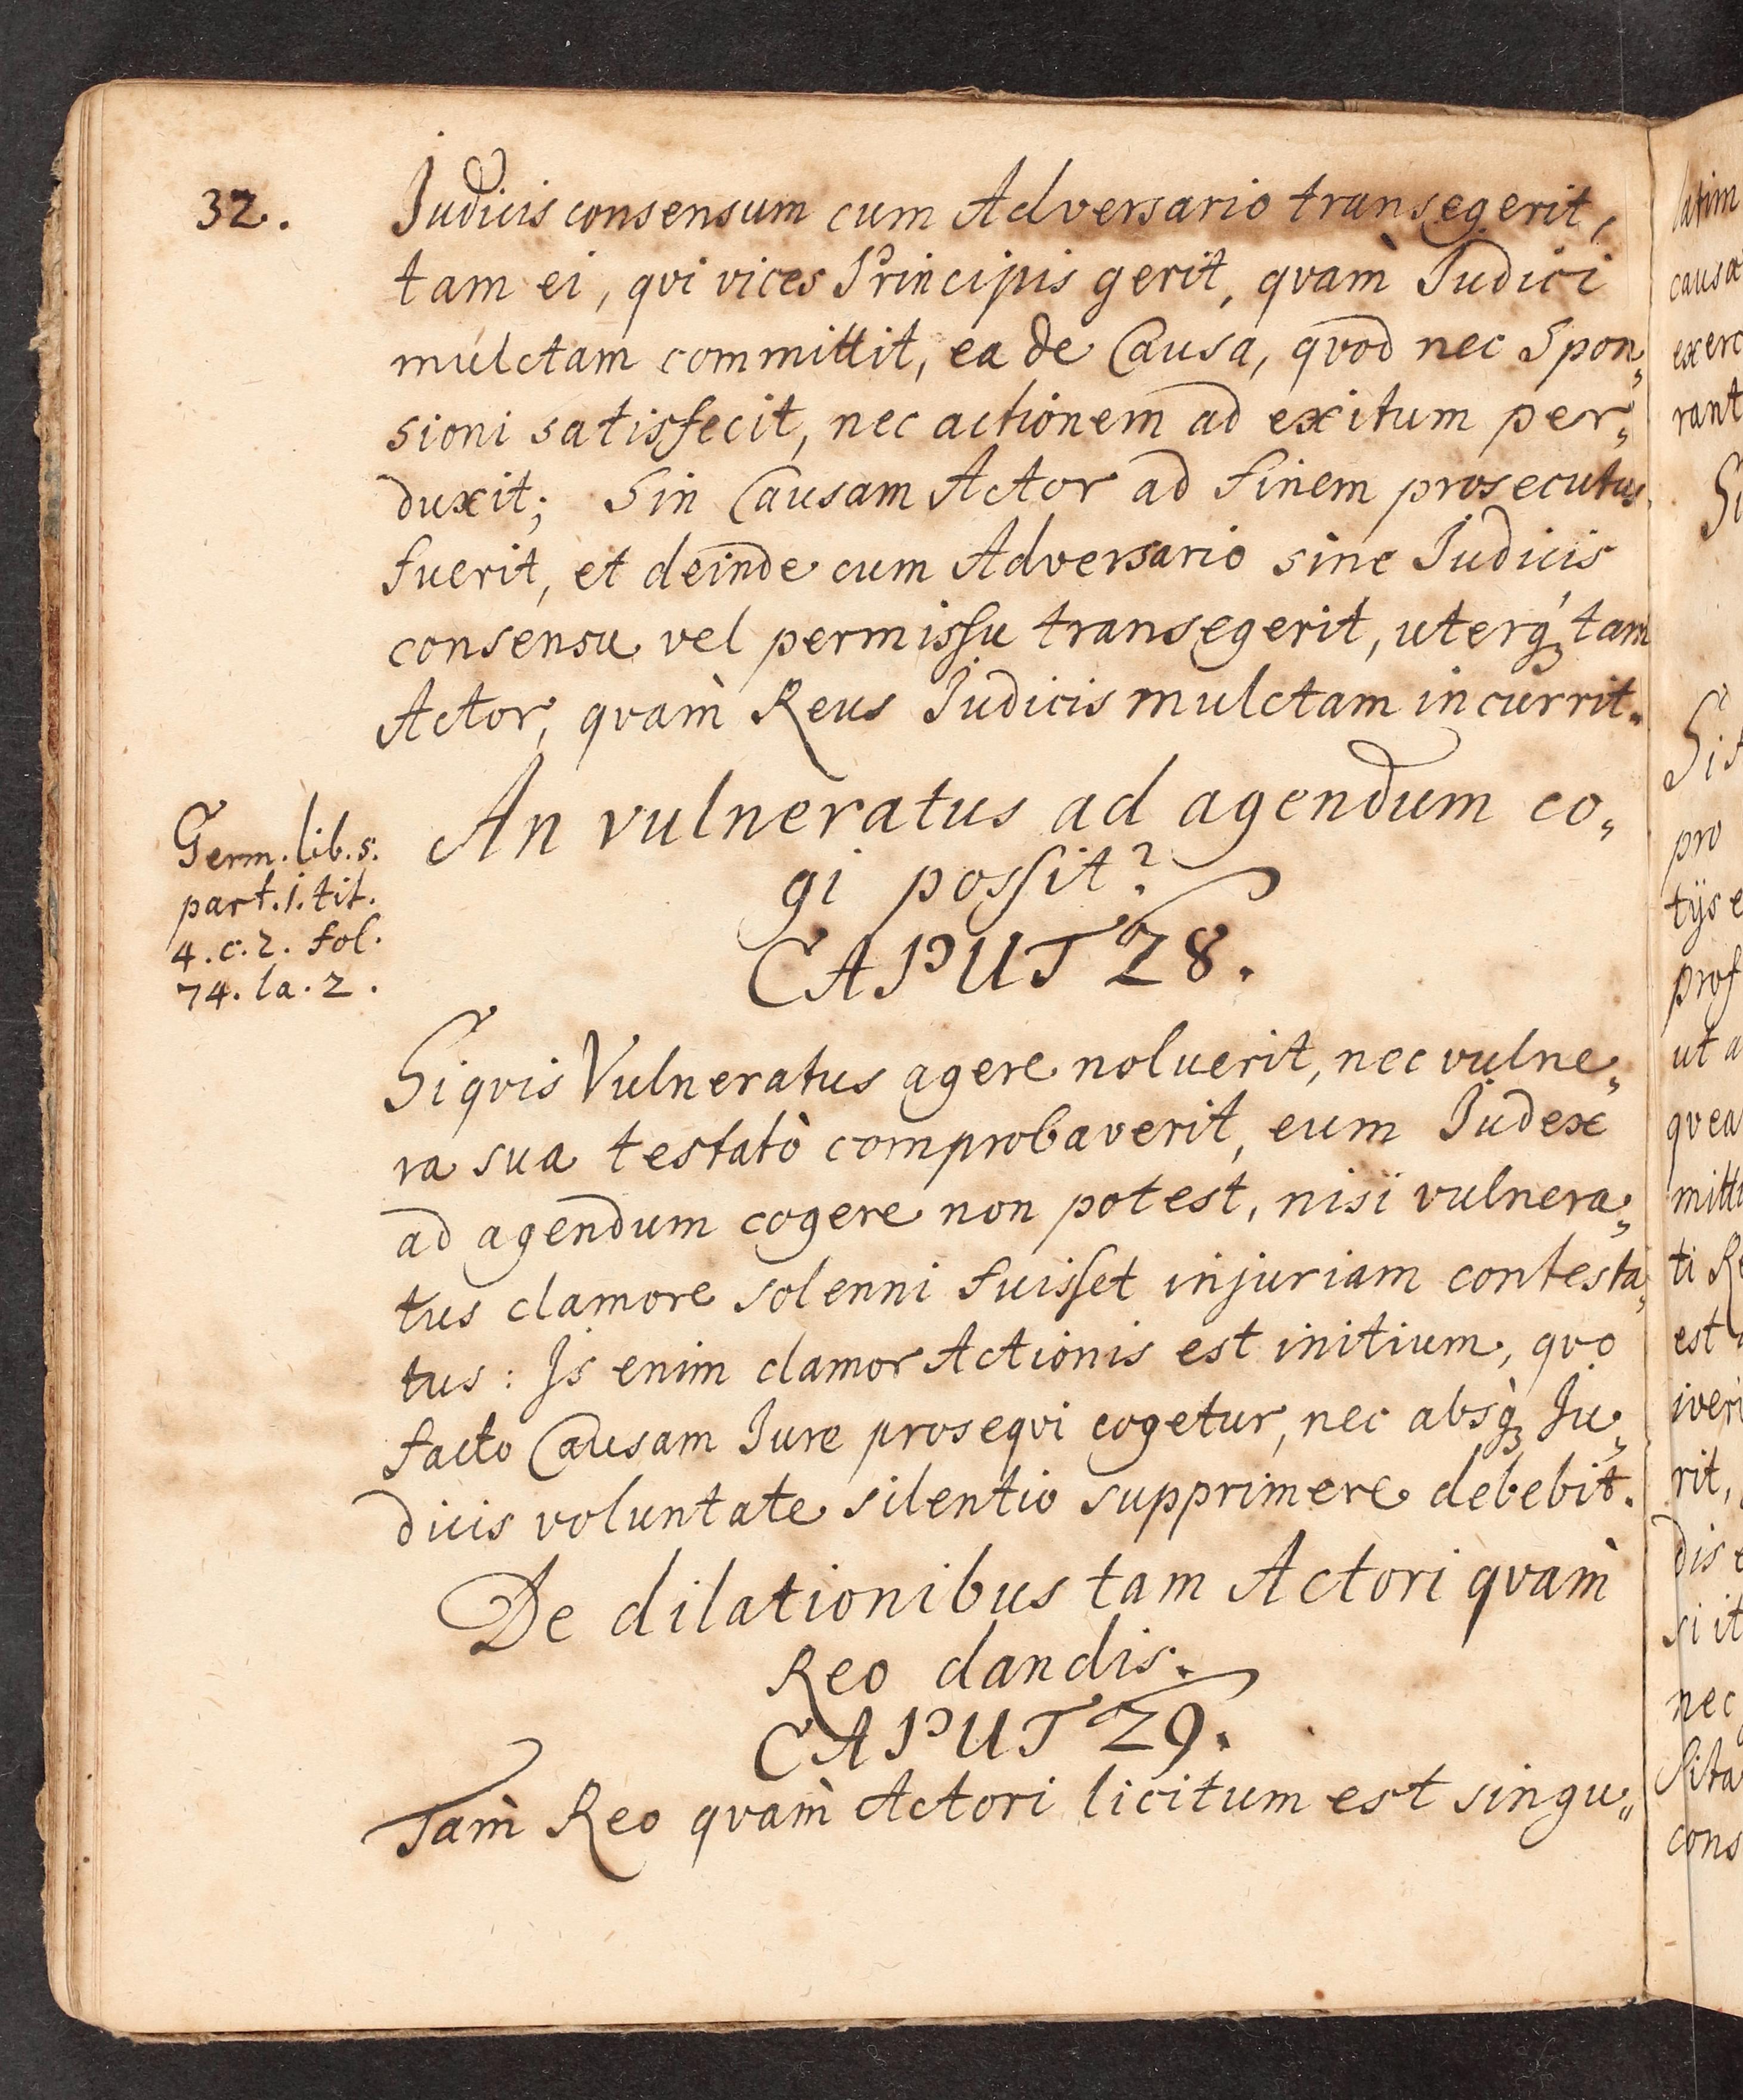 32.
Judicis consensum cum Adversario transegerit,
tam ei, qvi vices Principis gerit, qvam̀ Judici
mulctam committit, ea de Causa, qvod nec Spon„
sioni satisfecit, nec actionem ad exitum per„
duxit; Sin Causam Actor ad finem prosecutus
fuerit, et deinde cum Adversario sine Judicis
consensu vel permisſu transegerit, uterq́ꝫ tam
Actor, qvam̀ Reus Judicis mulctam incurrit.
An vulneratus ad agendum co„
gi posſit?
CAPUT 28.
Germ. lib. 5.
part. 1. tit.
4. c. 2. fol.
74. la. 2.
Siqvis Vulneratus agere noluerit, nec vulne„
ra sua testatò comprobaverit, eum Judex
ad agendum cogere non potest, nisi vulnera„
tus clamore solenni fuisſet injuriam contesta„
tus: Js enim clamor Actionis est initium, qvo
facto Causam Jure proseqvi cogetur, nec absq̀ꝫ Ju„
dicis voluntate silentio supprimere debebit.
De dilationibus tam Actori qvam̀
Reo dandis.
CAPUT 29.
Tam̀ Reo qvam̀ Actori licitum est singu„
causæ
exerc
rant
pro
tijs e
prof
ut a
qvea
mitt
ti Re
est
iveri
rit,
dis e
si it
nec
sita
cons